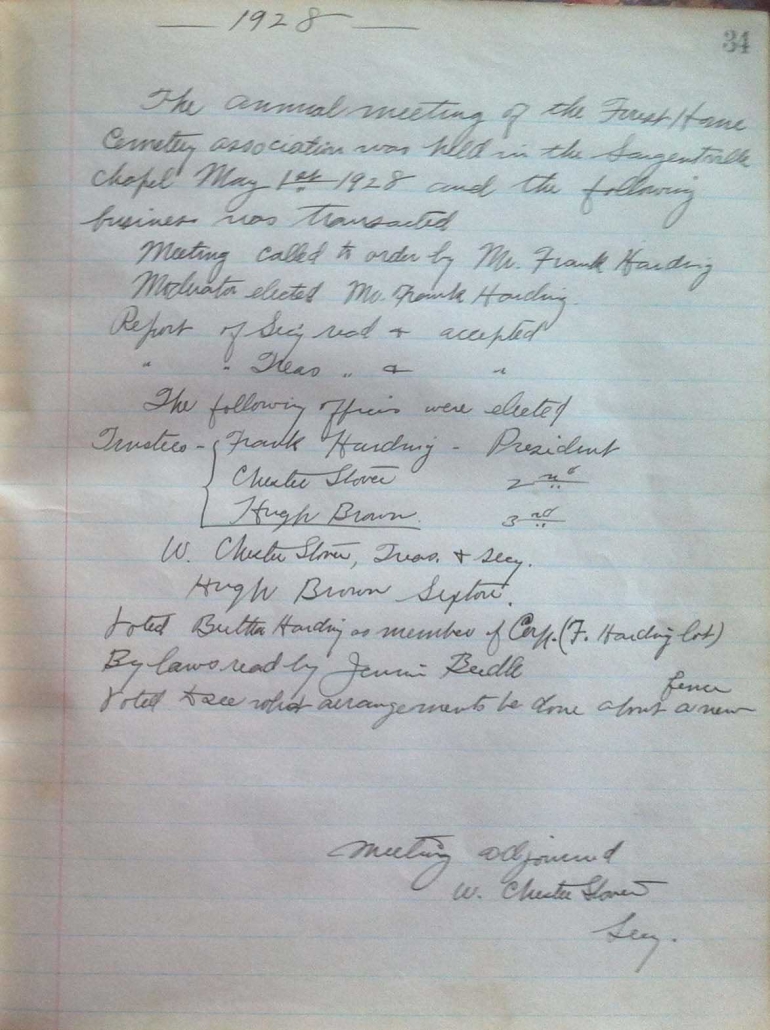 — 1928 —
34
The annual meeting of the Forest Home
Cemetery association was held in the Sargentville
chapel May 1st 1928 and the following
business was transacted
Meeting called to order by Mr. Frank Harding
Moderator elected Mr. Frank Harding.
Report of Sec'y read & accepted
" " Treas " & "
The following officers were elected
Trustees - Frank Harding - President
Chester Stover 2nd
Hugh Brown 3rd
W. Chester Stover, Treas. & Secy.
Hugh Brown Sexton.
Voted Bertha Harding as member of Corp. (F. Harding lot)
By laws read by Jennie Beedle
fence
Voted to see what arrangements be done about a new
Meeting adjourned
W. Chester Stover
Secy.